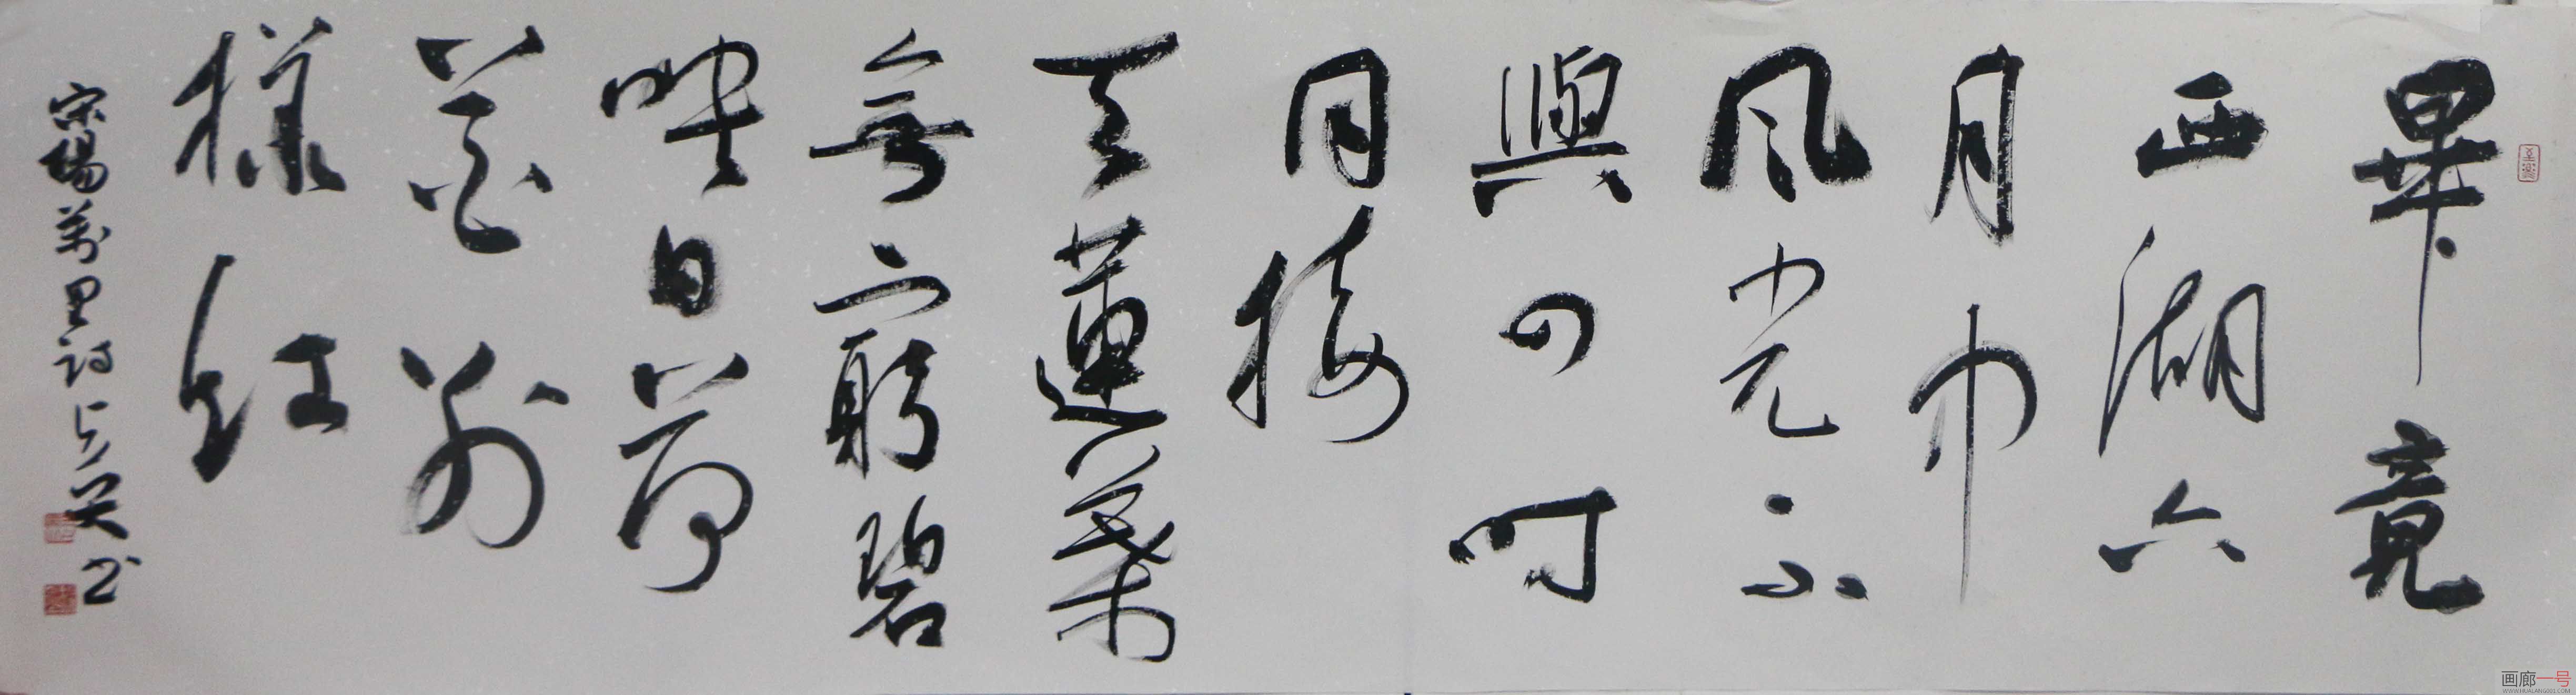 畢竟
西湖六
月中
風光不
與四時
同接
天蓮葉
無窮碧
映日荷
花別
樣紅
宋楊萬里詩
画廊一号